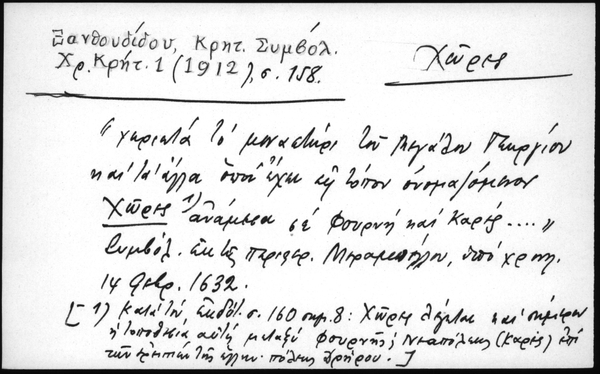 Ξανθουδίδου, Κρητ. Συμβόλ.
Χρ. Κρήτ. 1 (1912), σ. 158.
Χῶρες
" χωριστά τό μοναστήρι τοῦ Μεγάλου Γεωργίου
καί τά ἄλλα ὁποῦ ἔχει εἰς τόπον ὀνομαζόμενον
Χῶρες 1) ἀνάμεσα σέ Φουρνή καί Καρές .... "
Συμβόλ. ἐκ τῆς περιφερ. Μεραμπέλλου, ὑπό χρον.
14 Φεβρ. 1632.
[ 1) Κατά τόν ἐκδότ. σ. 160 σημ. 8: Χῶρες λέγεται καί σήμερον
ἡ τοποθεσία αὐτή μεταξύ Φουρνῆς Νεαπόλεως (Καρές) ἐπί
τῶν ἐρειπίων τῆς ἑλλην. πόλεως Δρήρου. ]